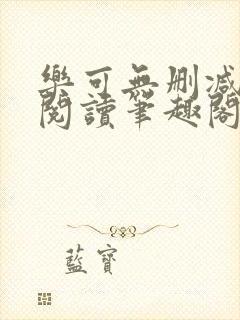 樂可無刪減
閱讀筆趣閣
藍寶